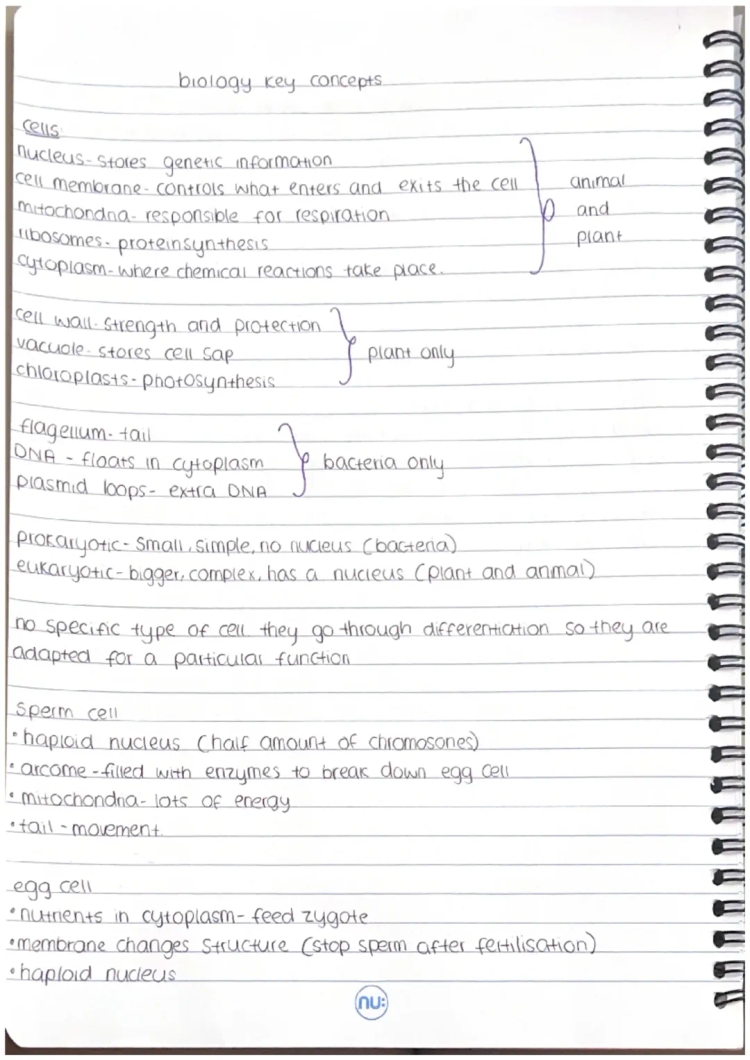 biology key concepts
cells
nucleus- stores genetic information
cell membrane- controls what enters and exits the cell
mitochondria- responsible for respiration
ribosomes- protein synthesis
cytoplasm- where chemical reactions take place.
animal
and
plant
cell wall- strength and protection
vacuole- stores cell sap
chloroplasts- photosynthesis
plant only
flagellum- tail
DNA - floats in cytoplasm
plasmid loops- extra DNA
bacteria only
prokaryotic- small, simple, no nucleus (bacteria)
eukaryotic- bigger, complex, has a nucleus (plant and anmal)
no specific type of cell they go through differentiation so they are
adapted for a particular function
sperm cell
• haploid nucleus (half amount of chromosones)
• arcome - filled with enzymes to break down egg cell
• mitochondria- lots of energy
• tail - movement
egg cell
• nutrients in cytoplasm- feed zygote
• membrane changes structure (stop sperm after fertilisation)
• haploid nucleus
nu: